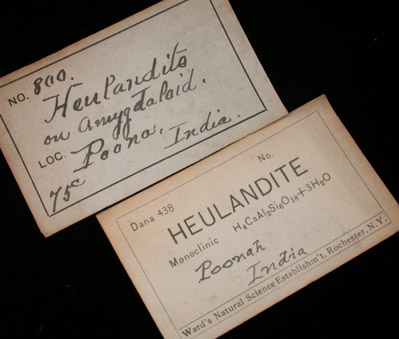 NO. 800.
Heulandite
on amygdaloid.
LOC. Poona, India.
75c
Dana 438
No.
HEULANDITE
Monoclinic H₄CaAl₂Si₆O₁₈+3H₂O
Poonah
India
Ward's Natural Science Establishm't, Rochester, N.Y.